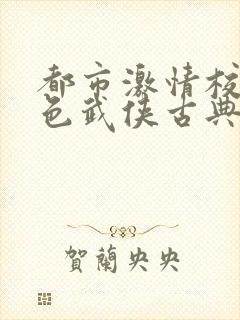 都市激情校
色武侠古典
賀蘭央央